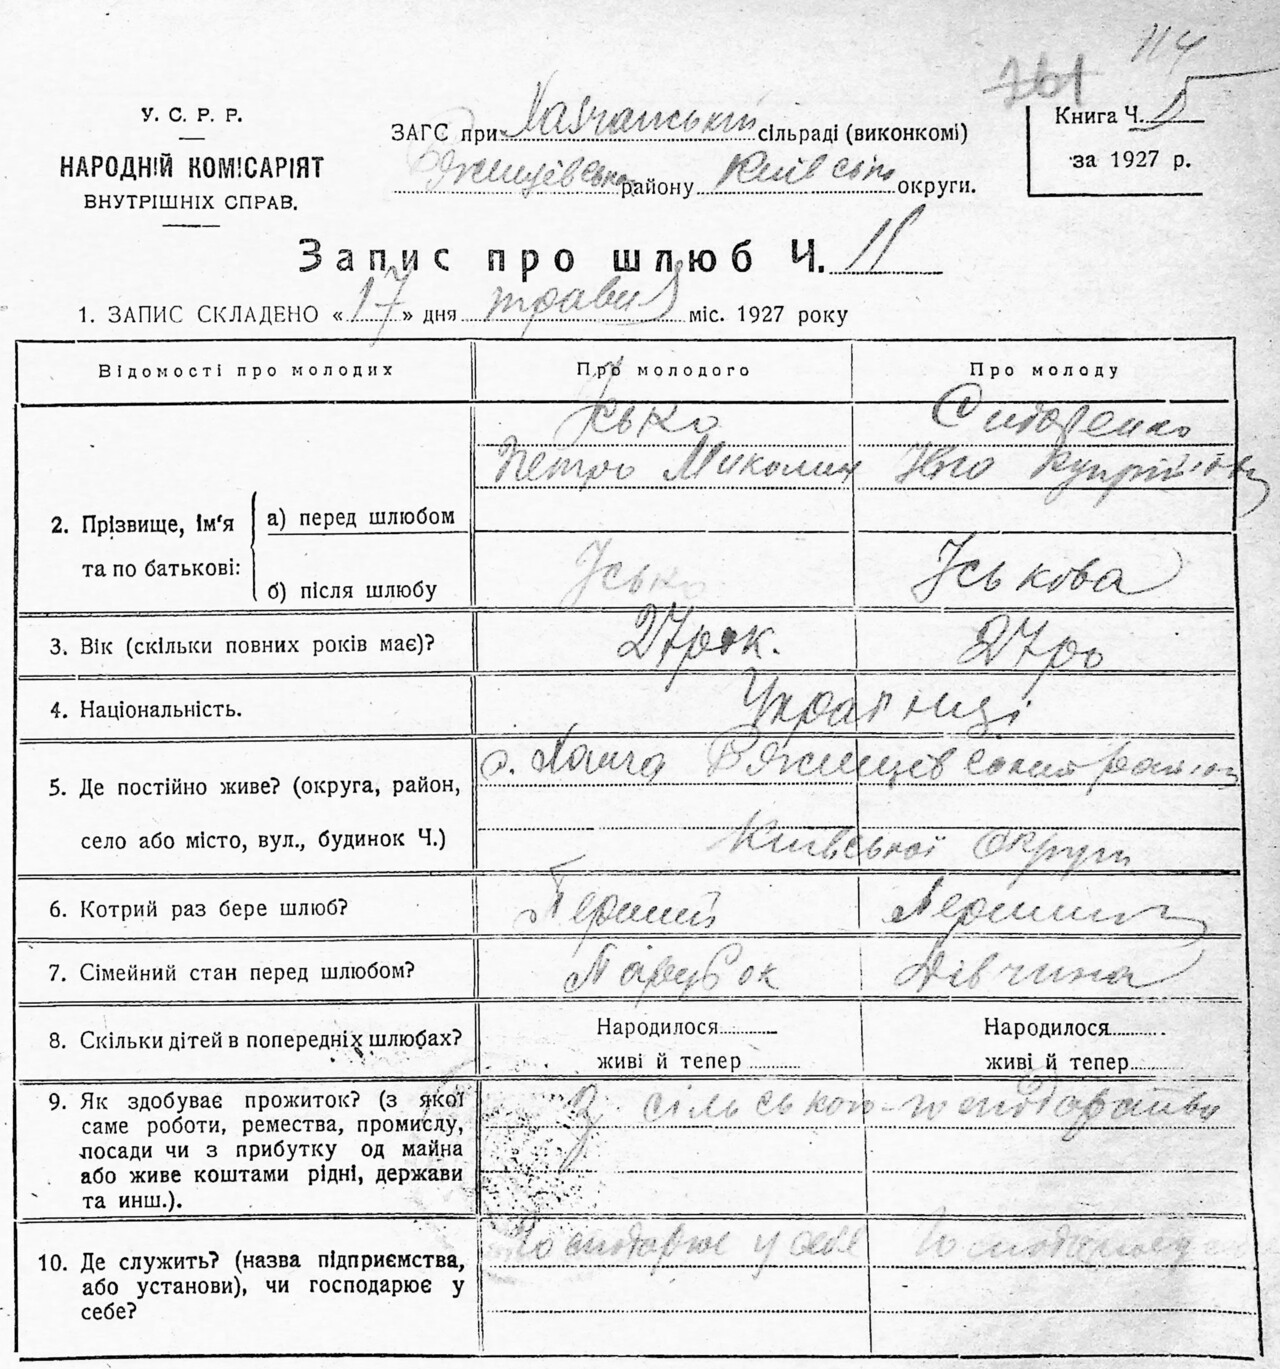 114
761
У. С. Р. Р.
НАРОДНІЙ КОМІСАРІЯТ
ВНУТРІШНІХ СПРАВ.
ЗАГС при Халчанській сільраді (виконкомі)
району Київської округи.
Книга Ч. 5
за 1927 р.
Запис про шлюб Ч. 11
1. ЗАПИС СКЛАДЕНО «17» дня травня міс. 1927 року
Відомості про молодих
Про молодого
Про молоду
2. Прізвище, ім'я та по батькові:
а) перед шлюбом
Усько
Петро Миколин
Сидоренко
б) після шлюбу
Усько
Уськова
3. Вік (скільки повних років має)?
27 рок.
27 ро
4. Національність.
Українці
5. Де постійно живе? (округа, район,
село або місто, вул., будинок Ч.)
с. Халча району
Київської округи
6. Котрий раз бере шлюб?
Перший
Перший
7. Сімейний стан перед шлюбом?
Парубок
Дівчина
8. Скільки дітей в попередніх шлюбах?
Народилося
живі й тепер
Народилося
живі й тепер
9. Як здобуває прожиток? (з якої
саме роботи, ремества, промислу,
посади чи з прибутку од майна
або живе коштами рідні, держави
та инш.).
З сільського господарства
10. Де служить? (назва підприємства,
або установи), чи господарює у
себе?
Господарює у себе